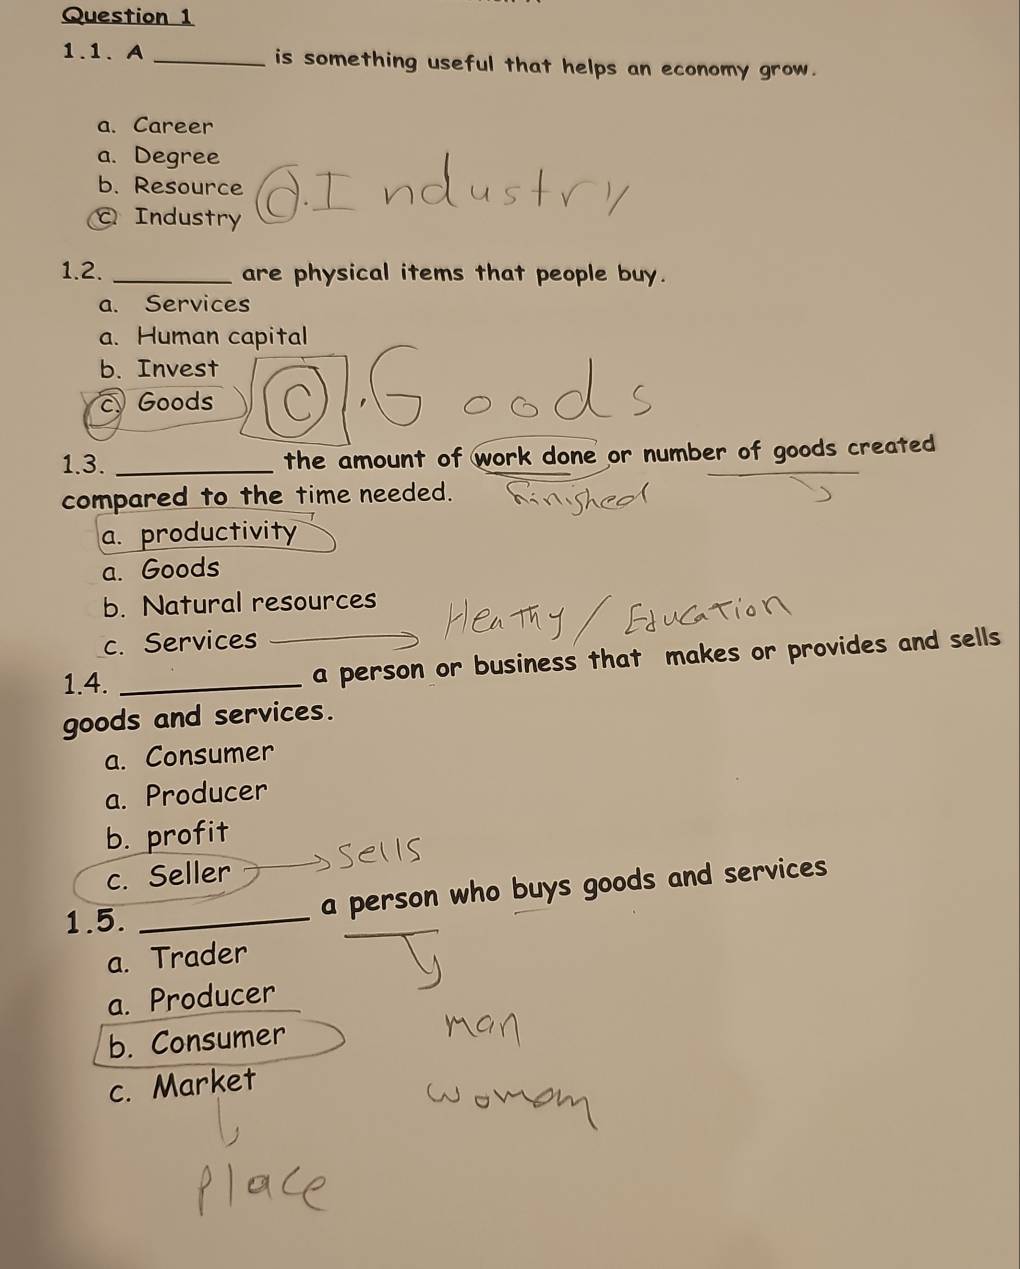 Question 1
1.1. A ________ is something useful that helps an economy grow.
a. Career
a. Degree
b. Resource
c. Industry
d. Industry
1.2. ________ are physical items that people buy.
a. Services
a. Human capital
b. Invest
c. Goods
C. Goods
1.3. ________ the amount of work done or number of goods created
compared to the time needed.
finished
a. productivity
a. Goods
b. Natural resources
c. Services
Heathy / Education
1.4. ________ a person or business that makes or provides and sells
goods and services.
a. Consumer
a. Producer
b. profit
c. Seller
sells
1.5. ________ a person who buys goods and services
a. Trader
a. Producer
b. Consumer
man
c. Market
womam
place